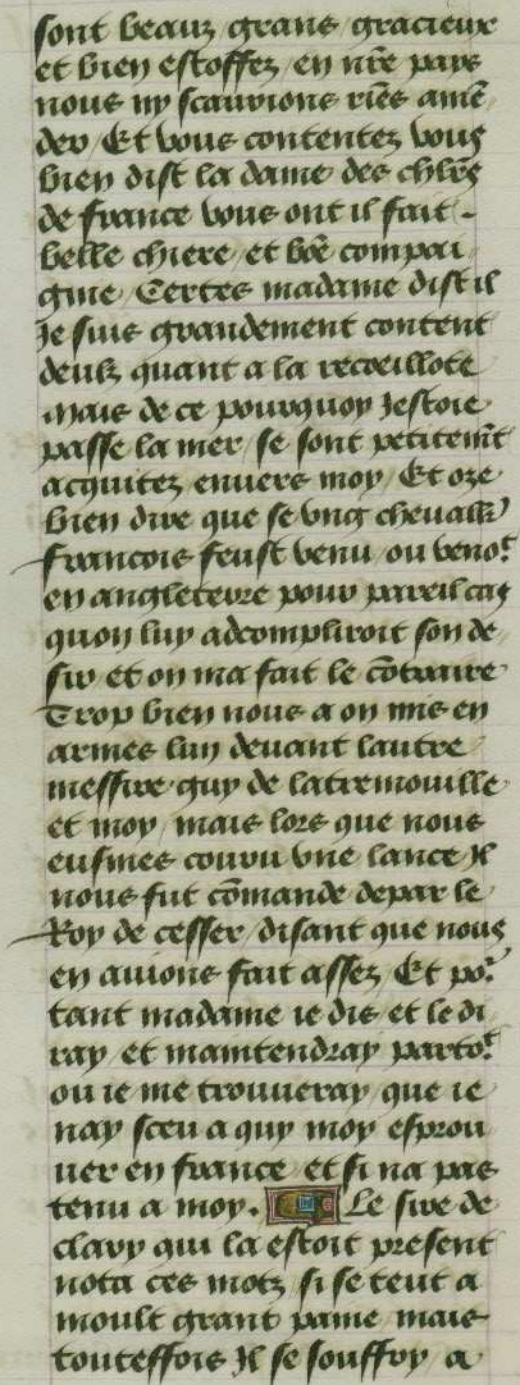 sont beaux grans gracieux
et bien estoffez en nr̃e pays
nous ny scaurions riẽs amẽ
der / Et vous contentez vous
bien dist la dame des chlr̃s
de france vous ont il fait .
belle chiere et bõe compai
gnie / Certes madame dist il
Je suis grandement content
deulx quant a la recoeillote
Mais de ce pourquoy Jestoie
passe la mer / se sont petitemt̃
acquitez enuers moy / Et oze
bien dire que se vng cheuallr̃
francois feust venu ou venoit
en angleterre pour pareil cas
quon luy adcompliroit son de
sir et on ma fait le cõtraire
Trop bien nous a on mis en
armes lun deuant lautre
messire guy de latremouille
et moy / mais lors que nous
eusmes couru vne lance Il
nous fut cõmande depar le
Roy de cesser / disant que nous
en auions fait assez Et por
tant madame ie dis et le di
ray et maintendray partot
ou ie me trouueray que ie
nay sceu a quy moy esprou
uer en france et si na pas
tenu a moy . Le sire de
clary qui la estoit present
nota ces motz si se teut a
moult grant paine mais
touteffois Il se souffry a